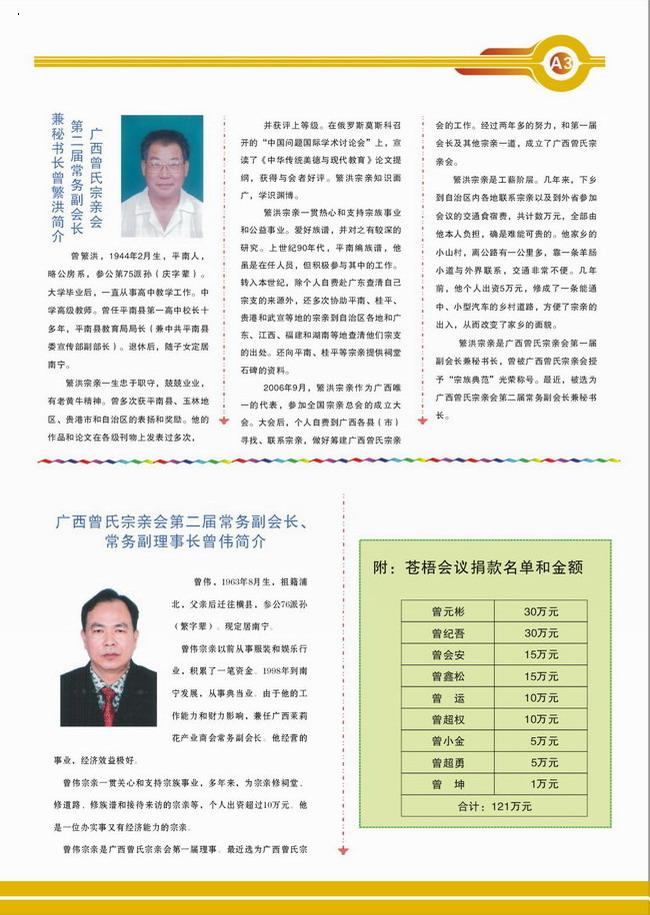 A3
广西曾氏宗亲会
第二届常务副会长
兼秘书长曾繁洪简介
曾繁洪，1944年2月生，平南人，
略公房系，参公第75派孙（庆字辈）。
大学毕业后，一直从事高中教学工作。中
学高级教师。曾任平南县第一高中校长十
多年，平南县教育局局长（兼中共平南县
委宣传部副部长）。退休后，随子女定居
南宁。
繁洪宗亲一生忠于职守，兢兢业业，
有老黄牛精神。曾多次获平南县、玉林地
区、贵港市和自治区的表扬和奖励。他的
作品和论文在各级刊物上发表过多次，
并获评上等级。在俄罗斯莫斯科召
开的“中国问题国际学术讨论会”上，宣
读了《中华传统美德与现代教育》论文提
纲，获得与会者好评。繁洪宗亲知识面
广，学识渊博。
繁洪宗亲一贯热心和支持宗族事业
和公益事业。爱好族谱，并对之有较深的
研究。上世纪90年代，平南编族谱，他
虽是在任人员，但积极参与其中的工作。
转入本世纪，除个人自费赴广东查清自己
宗支的来源外，还多次协助平南、桂平、
贵港和武宣等地的宗亲到自治区各地和广
东、江西、福建和湖南等地查清他们宗支
的出处。还向平南、桂平等宗亲提供祠堂
石碑的资料。
2006年9月，繁洪宗亲作为广西唯
一的代表，参加全国宗亲总会的成立大
会。大会后，个人自费到广西各县（市）
寻找、联系宗亲，做好筹建广西曾氏宗亲
会的工作。经过两年多的努力，和第一届
会长及其他宗亲一道，成立了广西曾氏宗
亲会。
繁洪宗亲是工薪阶层。几年来，下乡
到自治区内各地联系宗亲以及到外省参加
会议的交通食宿费，共计数万元，全部由
他本人负担，确是难能可贵的。他家乡的
小山村，离公路有一公里多，靠一条羊肠
小道与外界联系，交通非常不便。几年
前，他个人出资5万元，修成了一条能通
中、小型汽车的乡村道路，方便了宗亲的
出入，从而改变了家乡的面貌。
繁洪宗亲是广西曾氏宗亲会第一届
副会长兼秘书长，曾被广西曾氏宗亲会授
予“宗族典范”光荣称号。最近，被选为
广西曾氏宗亲会第二届常务副会长兼秘书
长。
广西曾氏宗亲会第二届常务副会长、
常务副理事长曾伟简介
曾伟，1963年8月生，祖籍浦
北，父亲后迁往横县，参公76派孙
（繁字辈）。现定居南宁。
曾伟宗亲以前从事服装和娱乐行
业，积累了一笔资金。1998年到南
宁发展，从事典当业。由于他的工
作能力和财力影响，兼任广西茉莉
花产业商会常务副会长。他经营的
事业，经济效益极好。
曾伟宗亲一贯关心和支持宗族事业，多年来，为宗亲修祠堂、
修道路、修族谱和接待来访的宗亲等，个人出资超过10万元。他
是一位办实事又有经济能力的宗亲。
曾伟宗亲是广西曾氏宗亲会第一届理事。最近选为广西曾氏宗
附：苍梧会议捐款名单和金额
曾元彬 30万元
曾纪吾 30万元
曾会安 15万元
曾鑫松 15万元
曾 运 10万元
曾超权 10万元
曾小金 5万元
曾超勇 5万元
曾 坤 1万元
合计：121万元